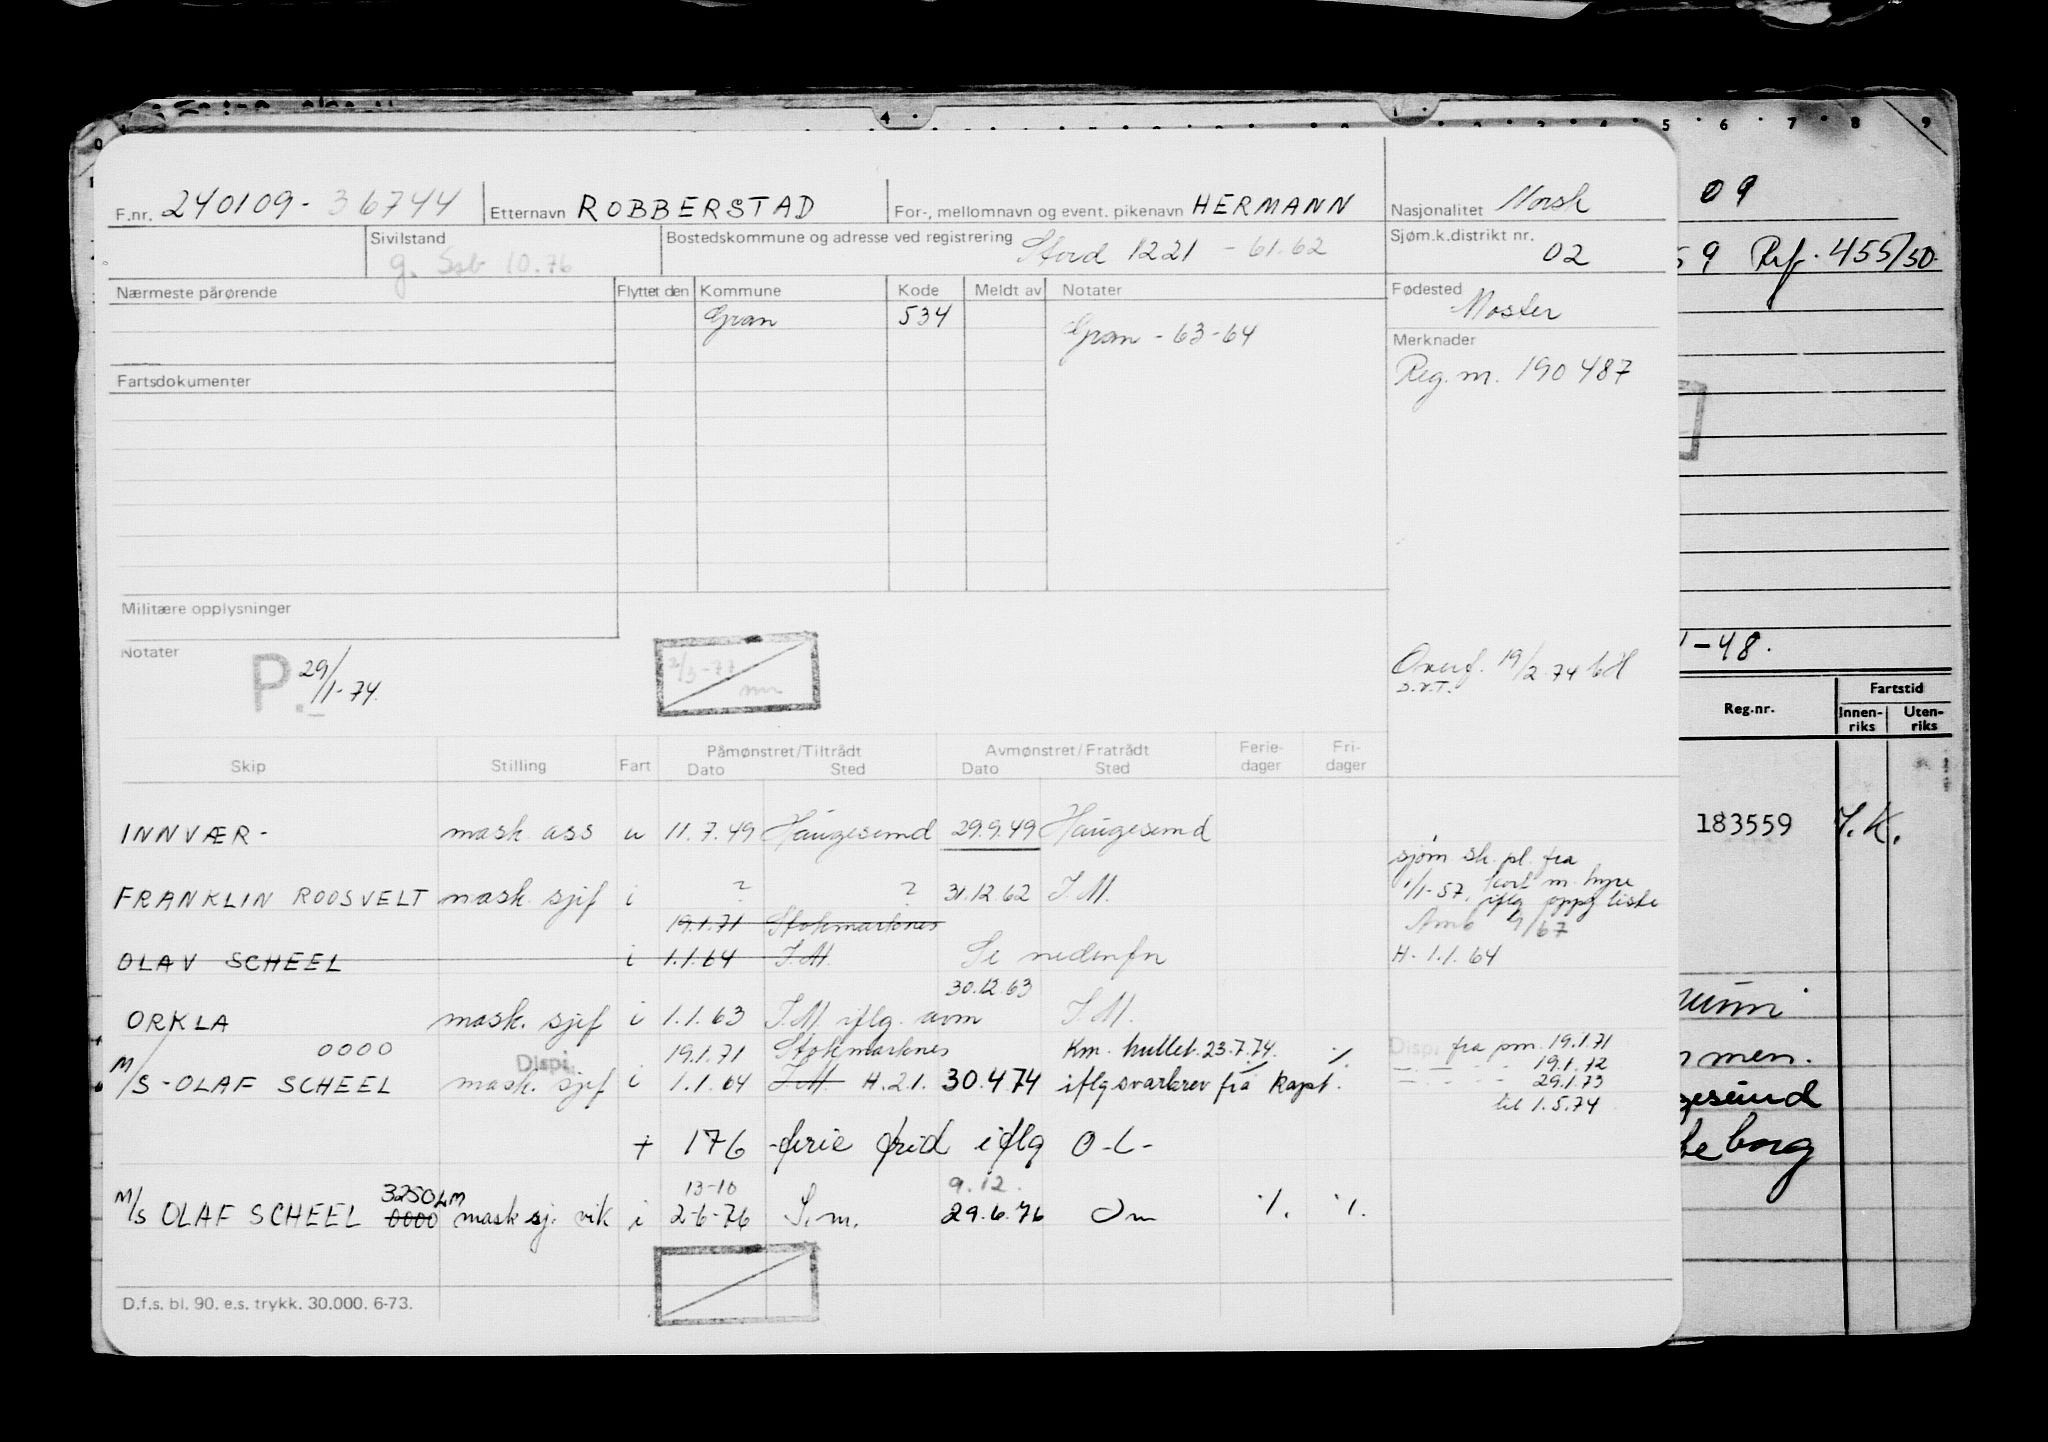 F.nr. 240109-36744 Etternavn ROBBERSTAD For-, mellomnavn og event. pikenavn HERMANN Nasjonalitet Norsk
Sivilstand g. Ssb 10.76 Bostedskommune og adresse ved registrering Stord 1221 - 61.62 Sjøm.k.distrikt nr. 02
Nærmeste pårørende Flyttet den Kommune Kode Meldt av Notater Fødested Moster
Gran 534 Gran - 63-64
Merknader
Reg.m. 190487
Fartsdokumenter
Militære opplysninger
Notater P. 29/1-74. 2/3-77 mn Overf. 19/2.74 bH
D.V.T.
Skip Stilling Fart Påmønstret/Tiltrådt Dato Sted Avmønstret/Fratrådt Dato Sted Ferie-dager Fri-dager
INNVÆR- mask. ass u 11.7.49 Haugesund 29.9.49 Haugesund
sjøm. sk. pl. fra
FRANKLIN ROOSVELT mask. sjef i ? ? 31.12.62 I.M. 1/1-57. kort m. hyre
iflg oppg liste
19.1.71 Stokmarknes 9/67
OLAV SCHEEL i 1.1.64 I.M. Se nedenfor H- 1.1.64
30.12.63
ORKLA mask. sjef i 1.1.63 I.M. iflg. avm I.M.
0000 Disp. 19.1.71 Stokmarknes Km. hullet. 23.7.74. % Disp. fra pm. 19.1.71
M/S - OLAF SCHEEL mask. sjef i 1.1.64 I.M H.2.1. 30.4.74 iflg svarbrev fra kapt. 19.1.72
29.1.73
til 1.5.74
+ 176 - ferie frid iflg O-L-
3250 LM 13-10 9.12.
M/S OLAF SCHEEL 0000 mask sj. vik i 2-6-76 I.m. 29.6.76 Im ·/. ·/.
D.f.s. bl. 90. e.s. trykk. 30.000. 6-73.
4 1 5 6 7 8 9
09
59 Ref. 455/50
1-48.
Reg.nr. Fartstid
Innen-riks Uten-riks
183559 I.K.
men.
gesund
borg